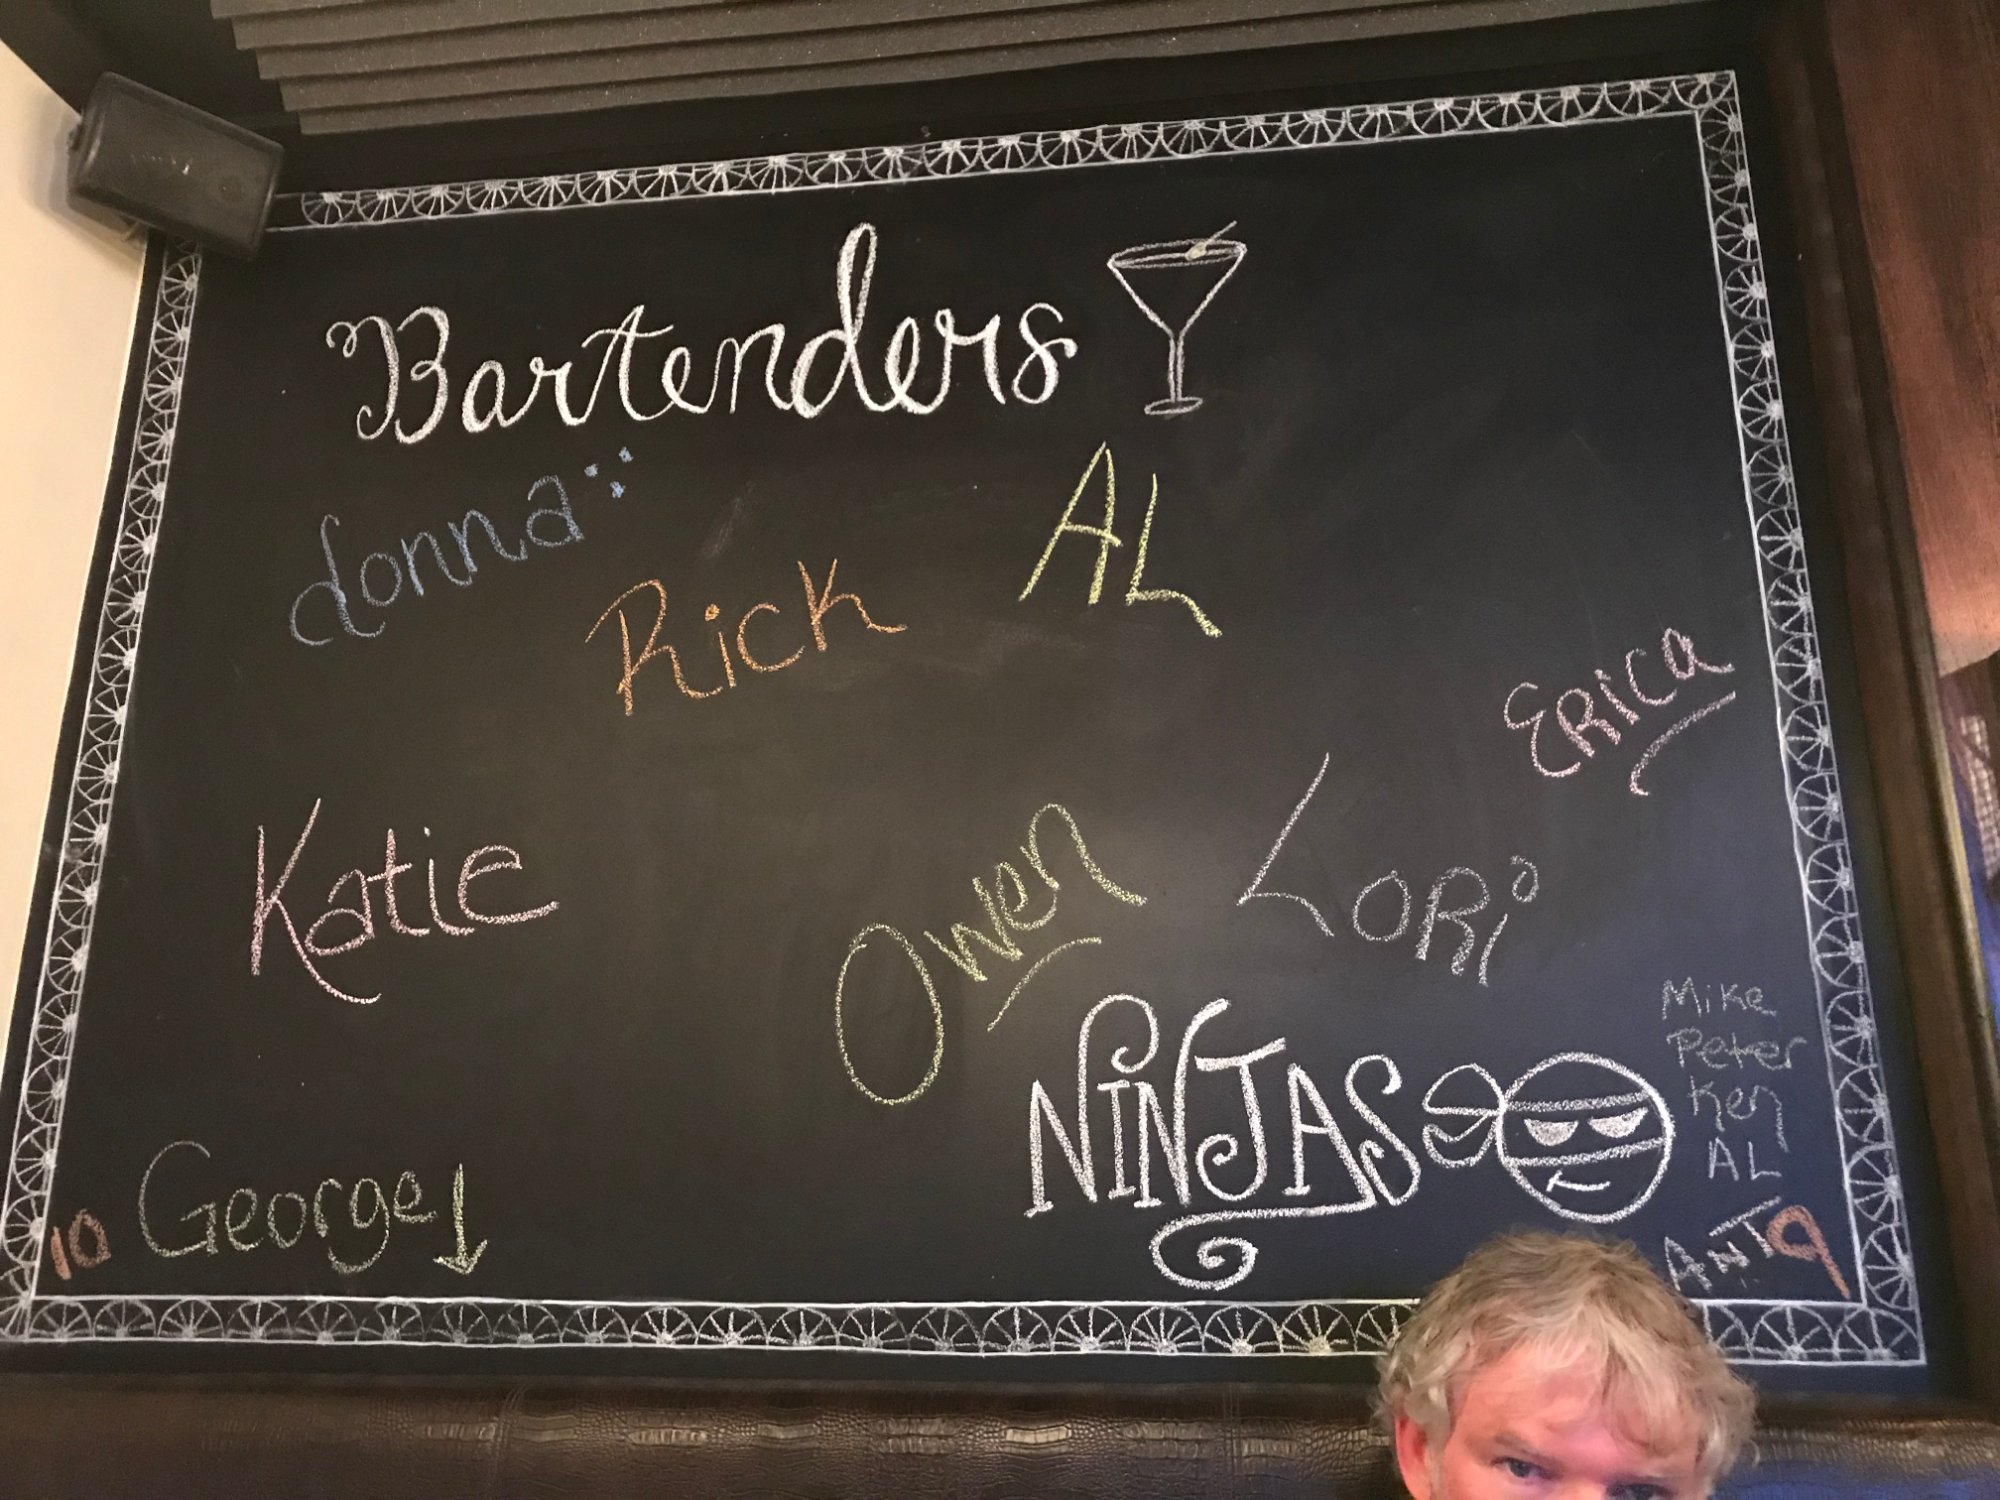 Bartenders
donna
Rick
AL
Erica
Katie
Owen
Lori
NINJAS
Mike
Peter
Ken
AL
ANT
9
10
George